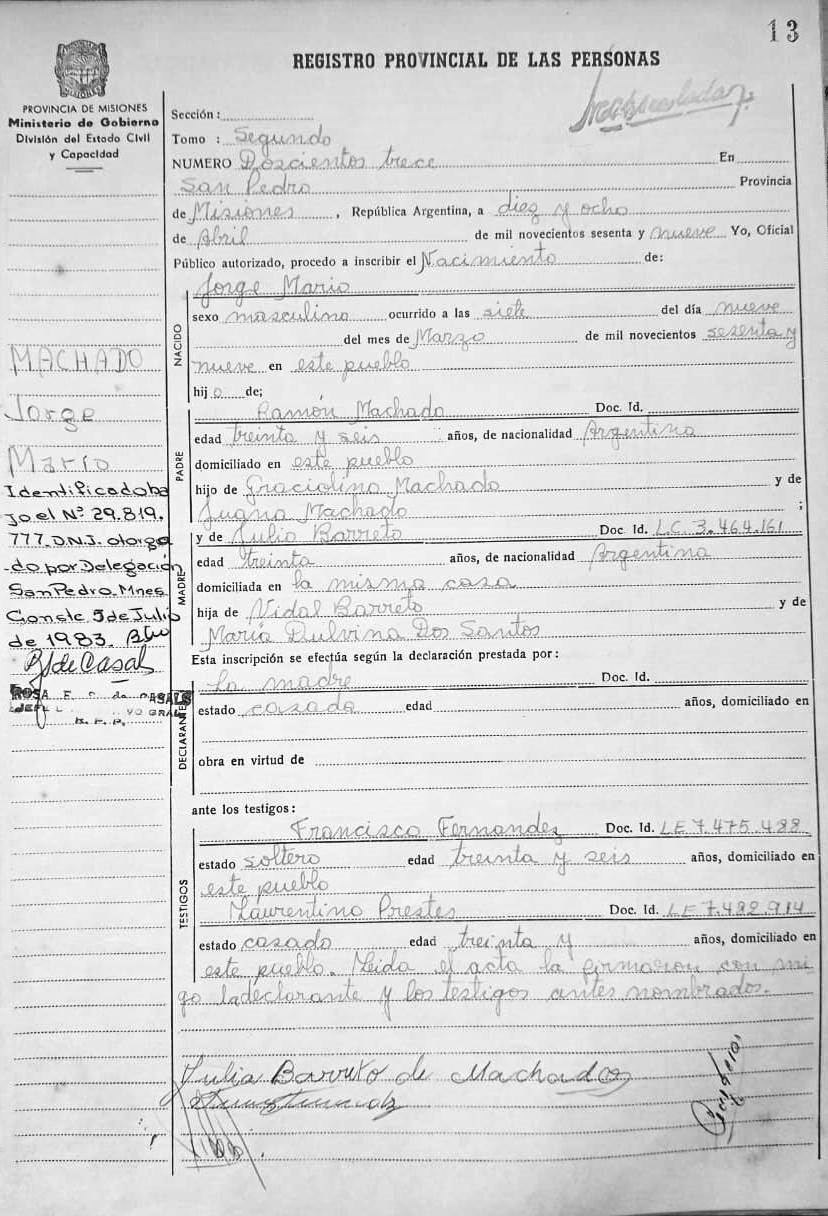 13
REGISTRO PROVINCIAL DE LAS PERSONAS
PROVINCIA DE MISIONES
Ministerio de Gobierno
División del Estado Civil
y Capacidad
Sección :
Tomo : Segundo
NUMERO Doscientos trece En
San Pedro Provincia
de Misiones , República Argentina, a diez y ocho
de Abril de mil novecientos sesenta y nueve Yo, Oficial
Público autorizado, procedo a inscribir el Nacimiento de:
NACIDO
Jorge Mario
sexo masculino ocurrido a las siete del día nueve
del mes de Marzo de mil novecientos sesenta y
nueve en este pueblo
hij o de;
PADRE
Ramón Machado Doc. Id.
edad treinta y seis años, de nacionalidad Argentina
domiciliado en este pueblo
hijo de Graciolino Machado y de
Juana Machado ;
MADRE
y de Julia Barreto Doc. Id. L.C. 3.464.161
edad treinta años, de nacionalidad Argentina
domiciliada en la misma casa
hija de Vidal Barreto y de
María Dulvina Dos Santos
Esta inscripción se efectúa según la declaración prestada por :
DECLARANTE
La madre Doc. Id.
estado casada edad años, domiciliado en
obra en virtud de
ante los testigos :
TESTIGOS
Francisco Fernandez Doc. Id. LE 7.475.488
estado soltero edad treinta y seis años, domiciliado en
este pueblo
Laurentino Prestes Doc. Id. LE 7.482.914
estado casado edad treinta y años, domiciliado en
este pueblo. Leida el acta la firmaron con mi
go ladeclarante y los testigos antes nombrados.
Julia Barreto de Machado
MACHADO
Jorge
Mario
Identificadoba
jo el Nº 29.819.
777. D.N.I. otorga
-do por Delegación
San Pedro. Mnes
Conste 5 de Julio
de 1983.
RJ de Casals
ROSA E. de CASALS